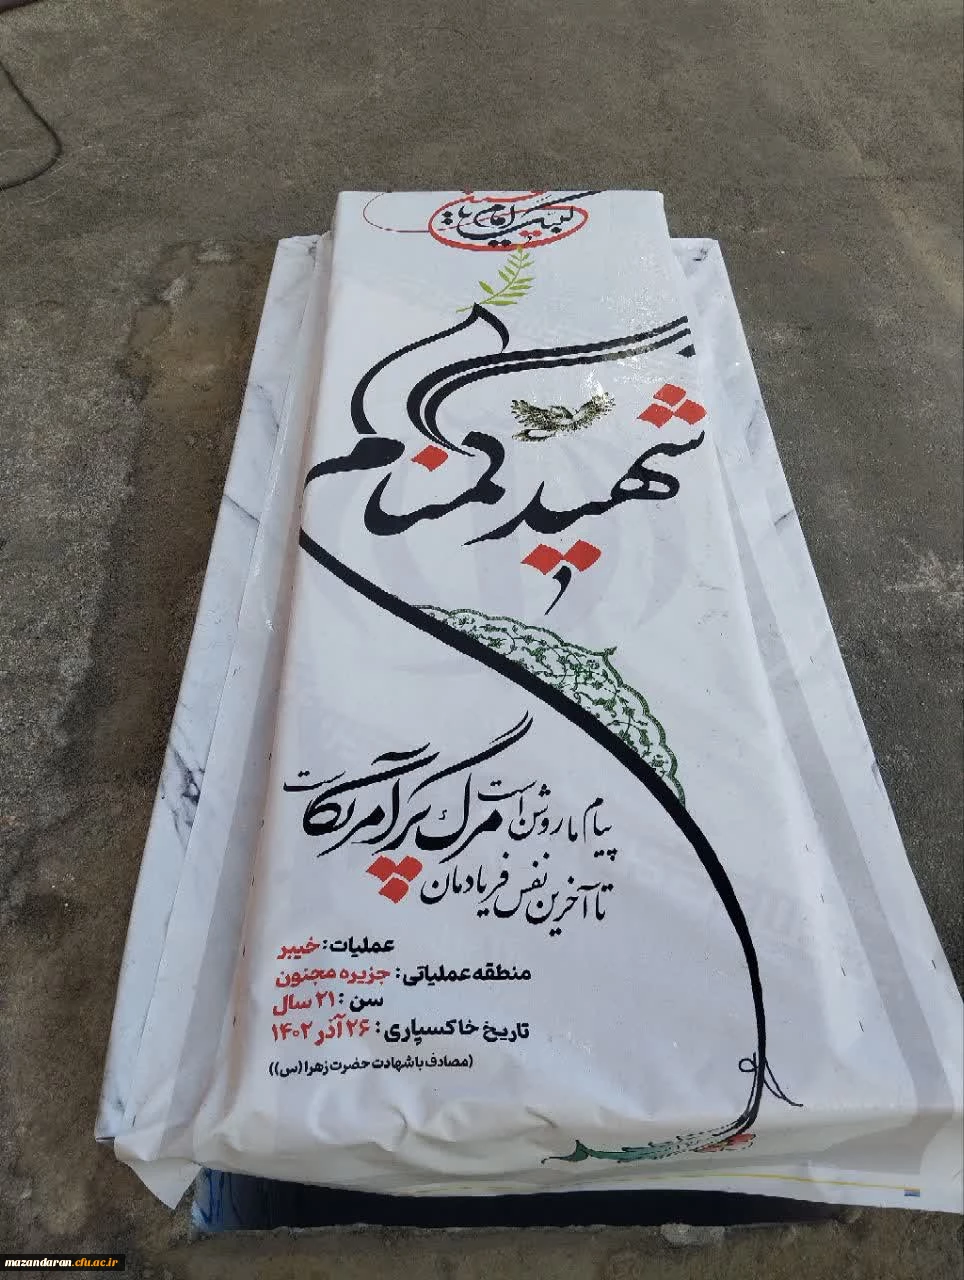 لبیک یا امام خمینی
شهید گمنام
پیام ما روشن است مرگ بر آمریکاست
تا آخرین نفس فریادمان
عملیات: خیبر
منطقه عملیاتی: جزیره مجنون
سن: ۲۱ سال
تاریخ خاکسپاری: ۲۶ آذر ۱۴۰۲
(مصادف با شهادت حضرت زهرا (س))
mazandaran.cfu.ac.ir